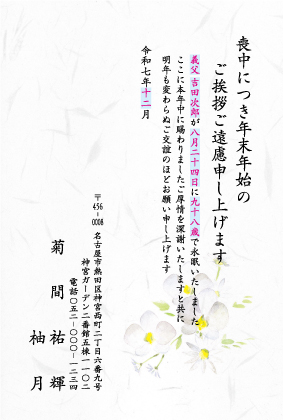 喪中につき年末年始の
ご挨拶ご遠慮申し上げます
義父 吉田次郎が八月二十四日に九十八歳で永眠いたしました
ここに本年中に賜わりましたご厚情を深謝いたしますと共に
明年も変わらぬご交誼のほどお願い申し上げます
令和七年十二月
〒456-0008
名古屋市熱田区神宮西町二丁目六番九号
神宮ガーデン二番館五棟一一〇二
電話〇五二-〇〇〇-一二三四
菊間祐輝
柚月